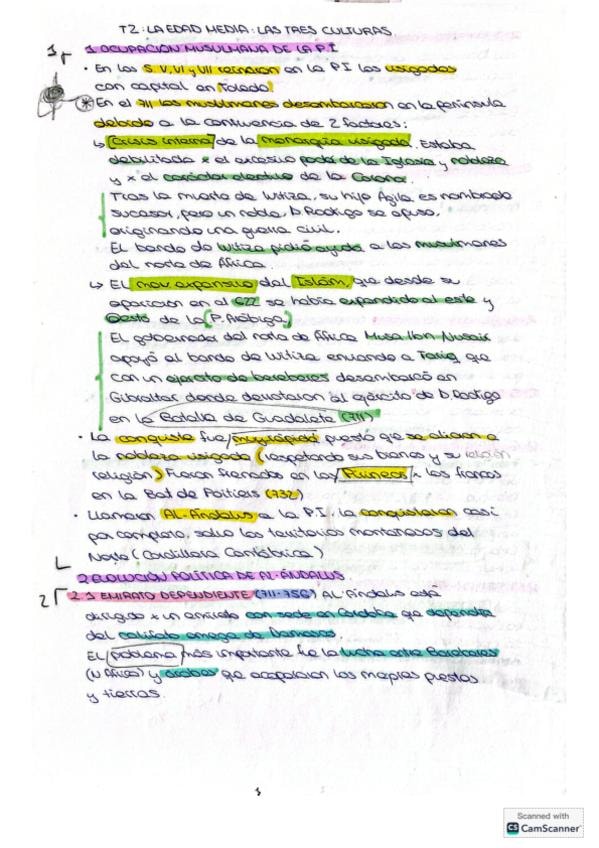 T2: LA EDAD MEDIA: LAS TRES CULTURAS
1 1. OCUPACIÓN MUSULMANA DE LA P.I
· En los S. V, VI y VII reinaron en la P.I los visigodos
con capital en Toledo.
* En el 711 los musulmanes desembarcaron en la península
debido a la confluencia de 2 factores:
↳ Crisis interna de la monarquía visigoda. Estaba
debilitada x el excesivo poder de la Iglesia y nobleza
y x el carácter electivo de la Corona.
Tras la muerte de Witiza, su hijo Agila es nombrado
sucesor, pero un noble, D. Rodrigo se opuso,
originando una guerra civil.
El bando de Witiza pidió ayuda a los musulmanes
del norte de África.
↳ El mov. expansivo del Islám, que desde su
aparición en el 622 se había expandido al este y
Oeste de la (P. Arábiga)
El gobernador del norte de África Musa Ibn Nusair
apoyó al bando de Witiza enviando a Tariq que
con un ejército de bareberes desembarcó en
Gibraltar donde derrotaron al ejército de D. Rodrigo
en la Batalla de Guadalete (711)
· La conquista fue muy rápida puesto que se aliaron a
la nobleza visigoda (respetando sus bienes y su
religión) Fueron frenados en los Pirineos x los francos
en la Bat de Poitiers (732)
· Llamaron AL-Ándalus a la P.I. la conquistaron casi
por completo, salvo los territorios montañosos del
Norte (Cordillera Cantábrica)
2 EVOLUCIÓN POLÍTICA DE AL-ÁNDALUS
2 2.1 EMIRATO DEPENDIENTE (711-756) AL-Ándalus está
dirigido x un emirato con sede en Córdoba que dependía
del califato omeya de Damasco.
El problema más importante fue la lucha entre Bareberes
(N África) y árabes que acapararon los mejores puestos
y tierras.
1
Scanned with
CS CamScanner